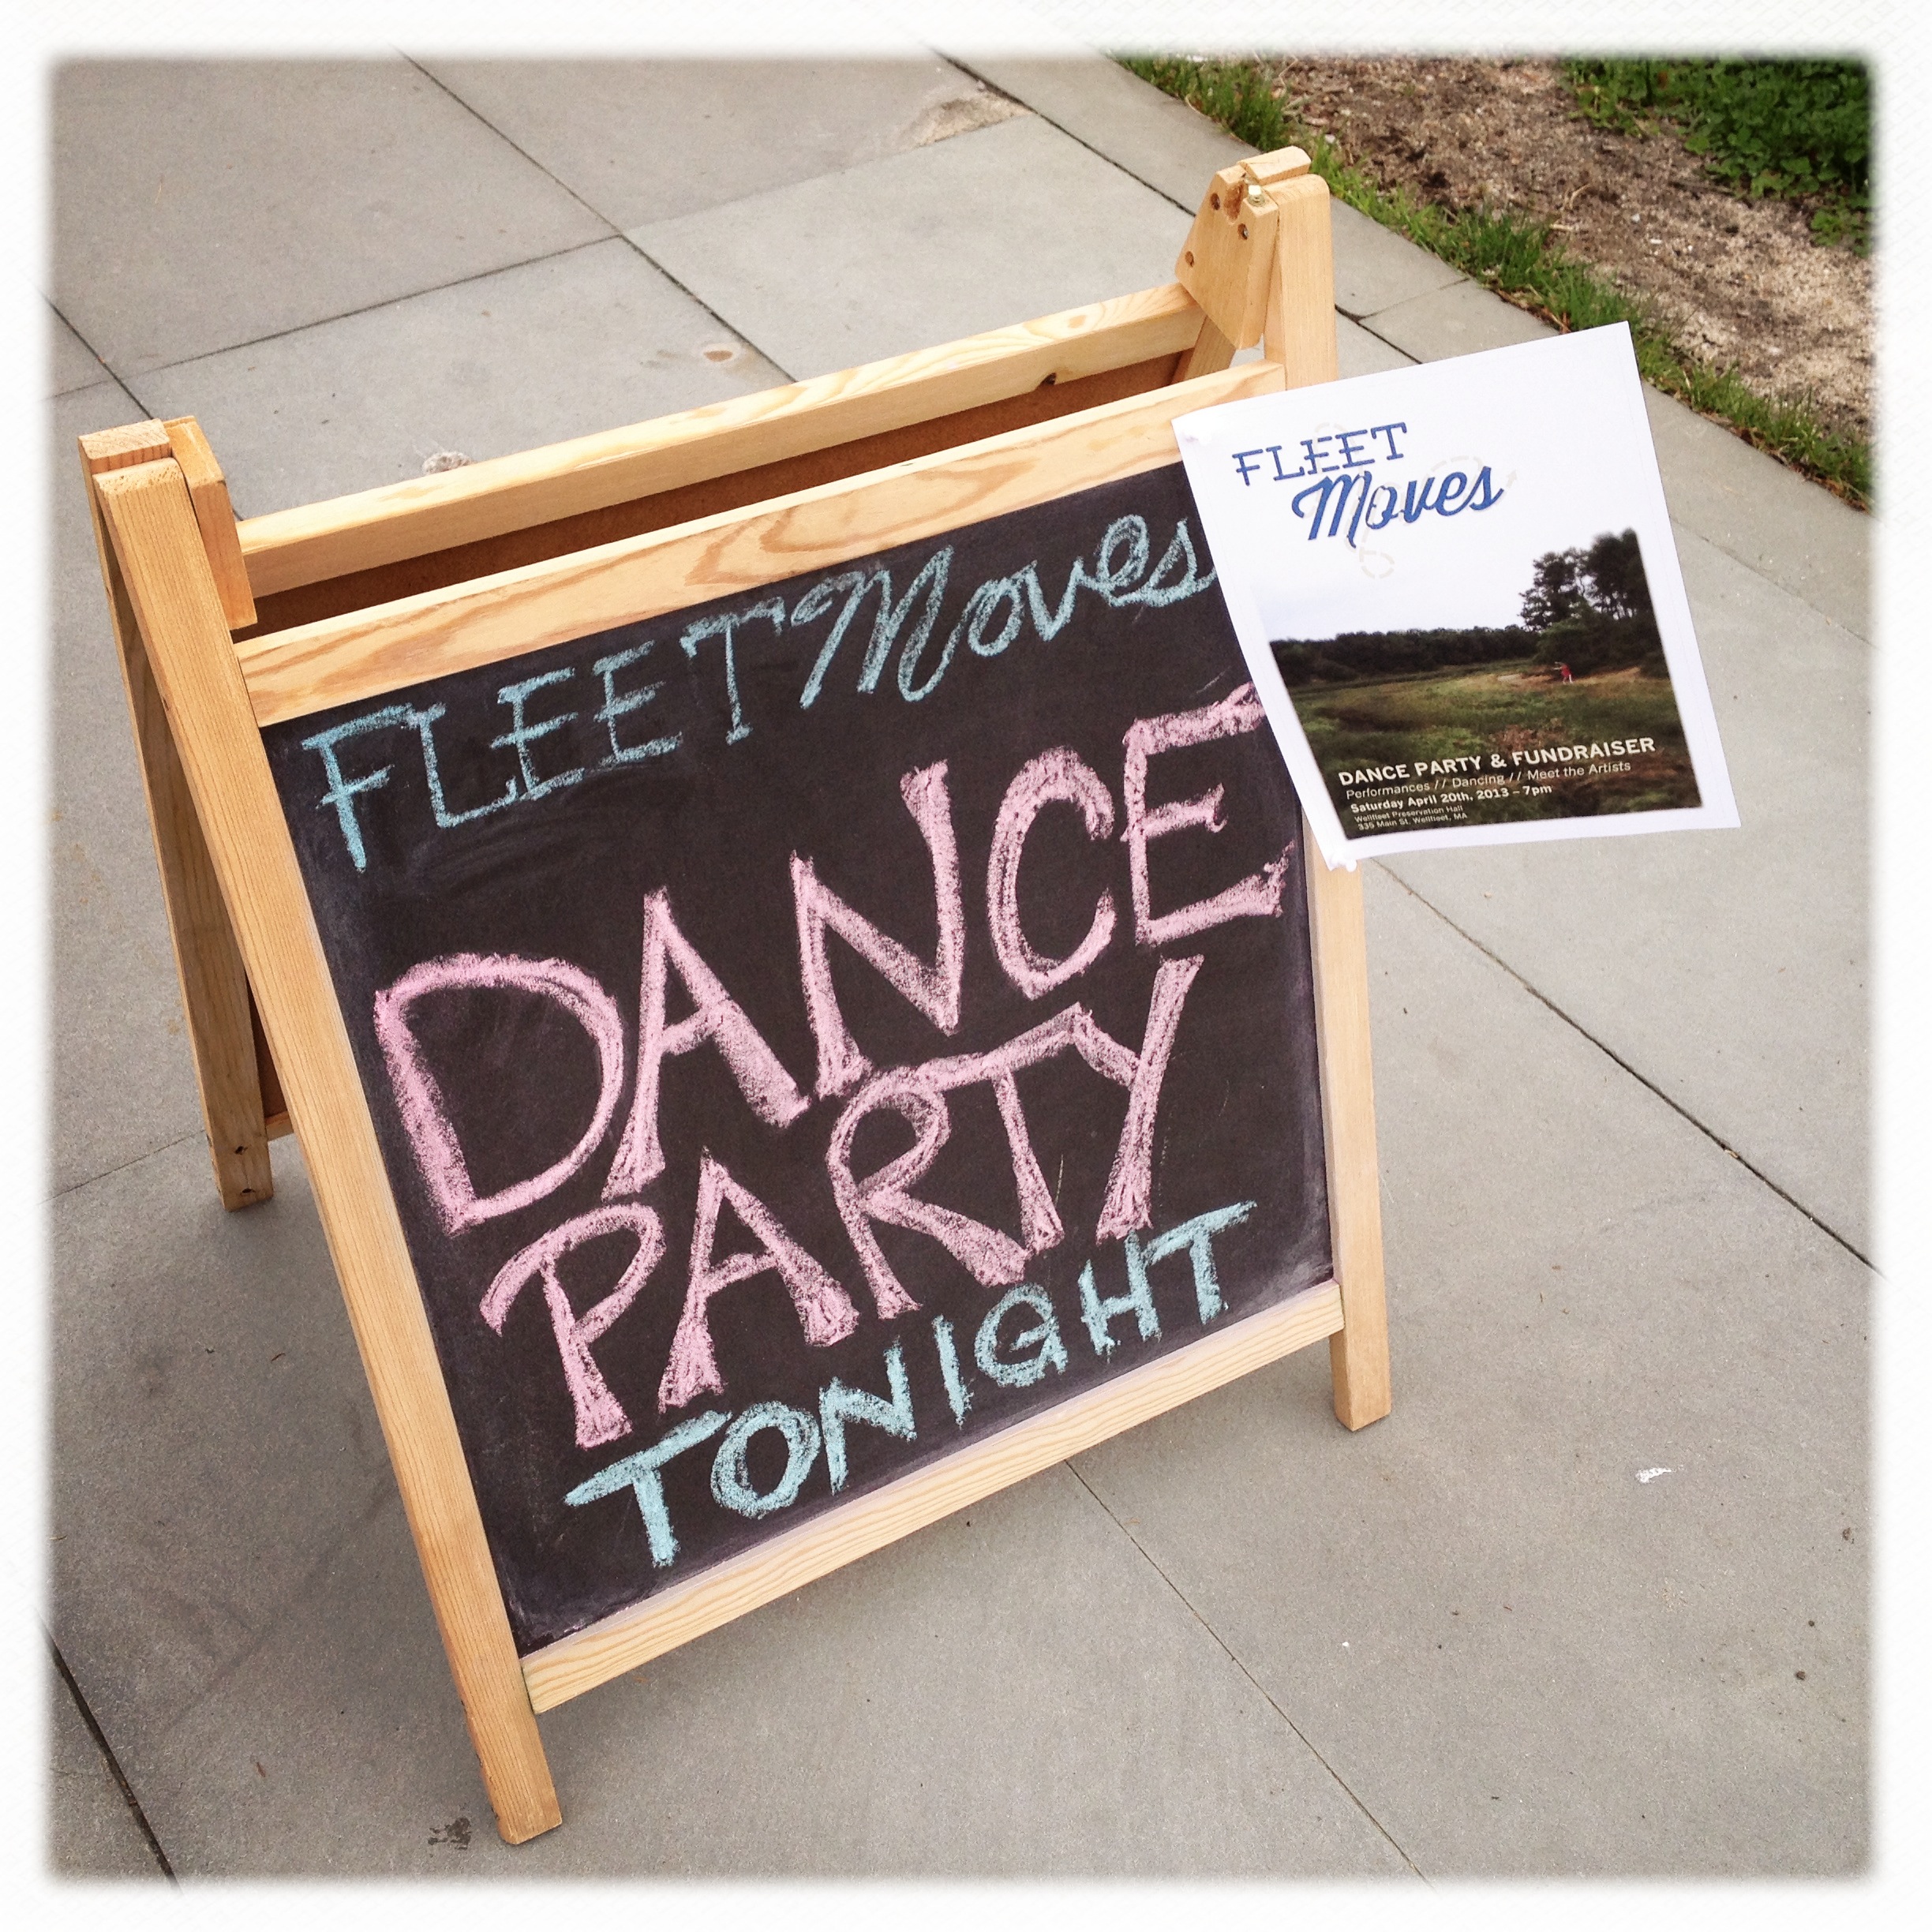 FLEET Moves
DANCE
PARTY
TONIGHT
FLEET
Moves
DANCE PARTY & FUNDRAISER
Performances // Dancing // Meet the Artists
Saturday April 20th, 2013 – 7pm
Wellfleet Preservation Hall
335 Main St. Wellfleet, MA